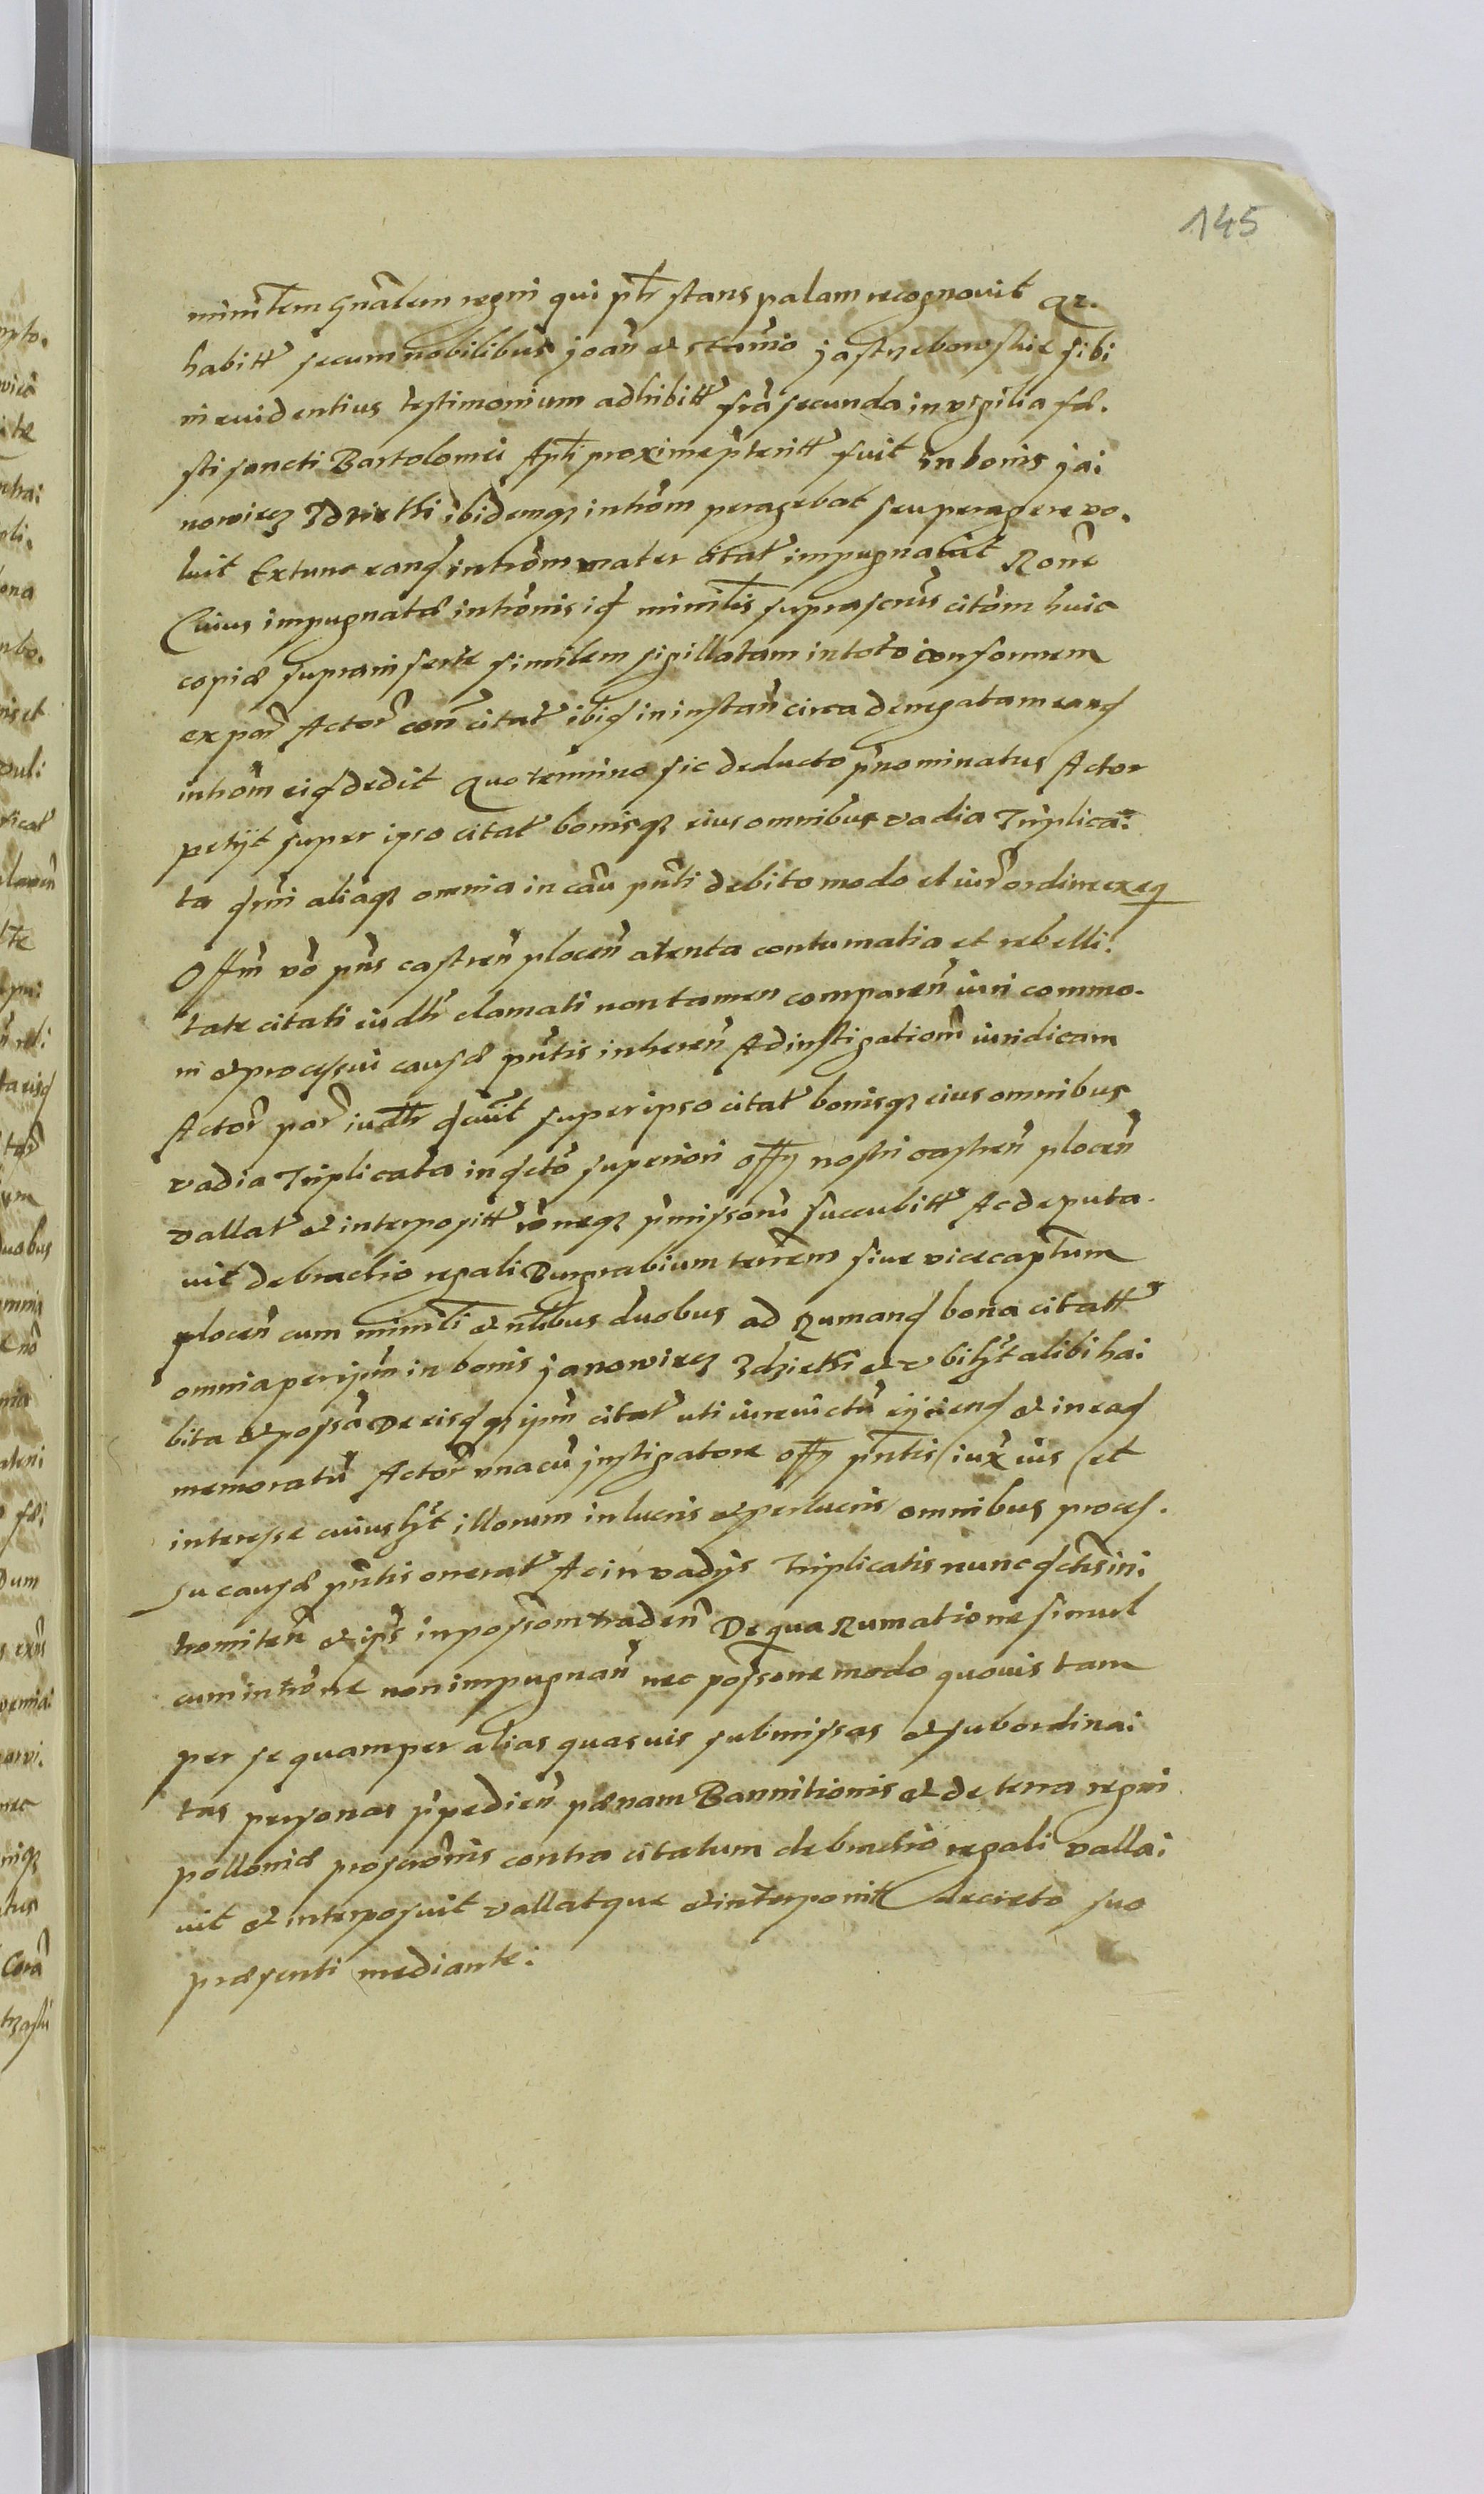 145
minrlem gnalem regni qui pnr stans palam recognovit qz.
habitt secum nobilibus joan et stanio jastrzebowskie sibi
in evidentius testimonium adhibitt fra secunda in vigilia fe.
sti sancti Bartolomei Apli proxime pteritt fuit in bonis ja:
nowiecz Zdzietki ibidemqz introm peragebat seu peragere vo.
luit Extunc eand introm mater citat impugnavit Rone
Cuius impugnatæ intronis id minrlis suprascrus citom huic
copiæ supra inserte similem sigillatam in toto conformem
ex par Actor con citat ibid in instan circa denegatam eand
introm eid dedit Quo termino sic deducto pnominatus Actor
petyt super ipso citat bonisqz eius omnibus vadia Triplica:
ta dcrni aliaqz omnia in cau pnti debito modo et iur ordine exeq
Offm vo pns castren plocen atenta contumatia et rebelli:
tate citati iudlr clamati non tamen comparen iuri commo.
ni et processui causæ pntis inheren Ad instigationem iuridicam
Actor par iudlr dcrevit super ipso citat bonisqz eius omnibus
vadia Triplicata in dcto superiori offy nostri castren plocen
vallat et interpositt roneqz pmissorum succubitt Ac deputa.
vit de brachio regali Burgrabium terrem sive vicecaptum
plocen cum minrli et nlibus duobus ad Rumand bona citatt
omnia per ipm in bonis janowiecz Zdzietki et ubilzt alibi ha:
bita et possa De eisdqz ipm citat uti iurevictu eyciend et in ead
memoratu Actor una cu jnstigatore offy pntis iux ius et
interesse cuiuslzt illorum in lucris et perlucris omnibus proces.
su causæ pntis onerat Ac in vadys Triplicatis nunc dctis in:
tromiten et ips in possom traden De qua Rumatione simul
cum introne non impugnan nec possone modo quovis tam
per se quam per alias quasvis submissas et subordina:
tas personas ipedien pœnam Bannitionis et de terra regni
polloniæ proscronis contra citatum de brachio regali valla:
vit et interposuit vallatque et interponit decreto suo
præsenti mediante.